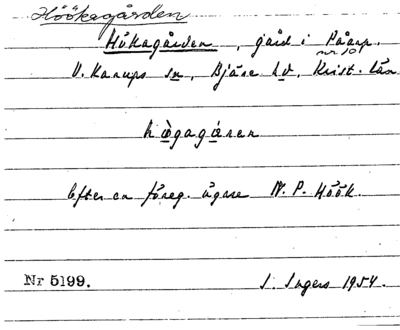 Höökagården
Hökagården, gård i Påarp.
nr 10
V. Karups sn, Bjäre hd, Krist. län
högagåren
Efter en föreg. ägare N. P. Höök.
Nr 5199. I. Ingers 1954.